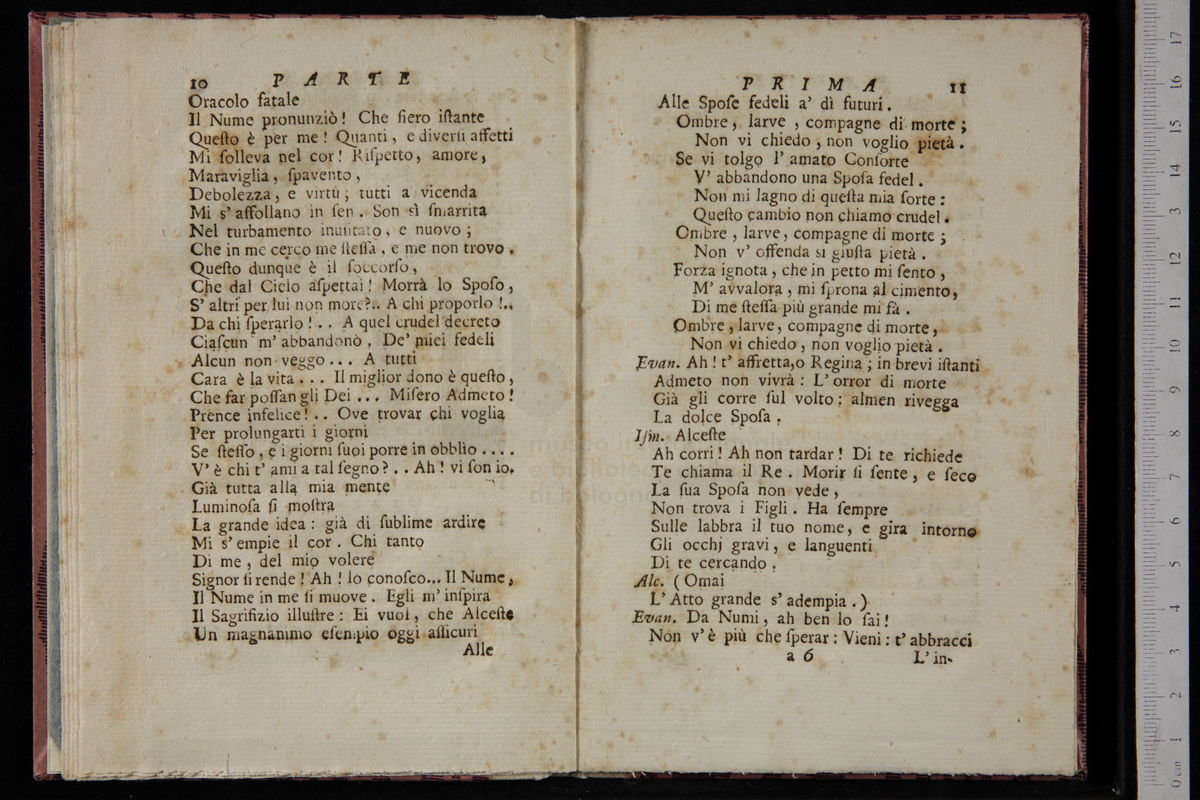 10 PARTE
Oracolo fatale
Il Nume pronunziò! Che fiero iſtante
Queſto è per me! Quanti, e diverſi affetti
Mi ſolleva nel cor! Riſpetto, amore,
Maraviglia, ſpavento,
Debolezza, e virtù; tutti a vicenda
Mi s' affollano in ſen. Son sì ſmarrita
Nel turbamento inuſitato, e nuovo;
Che in me cerco me ſteſſa, e me non trovo.
Queſto dunque è il ſoccorſo,
Che dal Cielo aſpettai! Morrà lo Spoſo,
S' altri per lui non more?.. A chi proporlo!..
Da chi ſperarlo!.. A quel crudel decreto
Ciaſcun m' abbandonò. De' miei fedeli
Alcun non veggo... A tutti
Cara è la vita... Il miglior dono è queſto,
Che far poſſan gli Dei... Miſero Admeto!
Prence infelice!.. Ove trovar chi voglia
Per prolungarti i giorni
Se ſteſſo, e i giorni ſuoi porre in obblìo....
V' è chi t' ami a tal ſegno?.. Ah! vi ſon io.
Già tutta alla mia mente
Luminoſa ſi moſtra
La grande idea: già di ſublime ardire
Mi s' empie il cor. Chi tanto
Di me, del mio volere
Signor ſi rende! Ah! lo conoſco... Il Nume,
Il Nume in me ſi muove. Egli m' inſpira
Il Sagrifizio illuſtre: Ei vuol, che Alceſte
Un magnanimo eſempio oggi aſſicuri
Alle
PRIMA 11
Alle Spoſe fedeli a' dì futuri.
Ombre, larve, compagne di morte;
Non vi chiedo, non voglio pietà.
Se vi tolgo l' amato Conſorte
V' abbandono una Spoſa fedel.
Non mi lagno di queſta mia ſorte:
Queſto cambio non chiamo crudel.
Ombre, larve, compagne di morte;
Non v' offenda sì giuſta pietà.
Forza ignota, che in petto mi ſento,
M' avvalora, mi ſprona al cimento,
Di me ſteſſa più grande mi fà.
Ombre, larve, compagne di morte,
Non vi chiedo, non voglio pietà.
Evan. Ah! t' affretta, o Regina; in brevi iſtanti
Admeto non vivrà: L' orror di morte
Già gli corre ſul volto: almen rivegga
La dolce Spoſa.
Iſm. Alceſte
Ah corri! Ah non tardar! Di te richiede
Te chiama il Re. Morir ſi ſente, e ſeco
La ſua Spoſa non vede,
Non trova i Figli. Ha ſempre
Sulle labbra il tuo nome, e gira intorno
Gli occhj gravi, e languenti
Di te cercando.
Alc. (Omai
L' Atto grande s' adempia.)
Evan. Da Numi, ah ben lo ſai!
Non v' è più che ſperar: Vieni: t' abbracci
a 6 L' in-